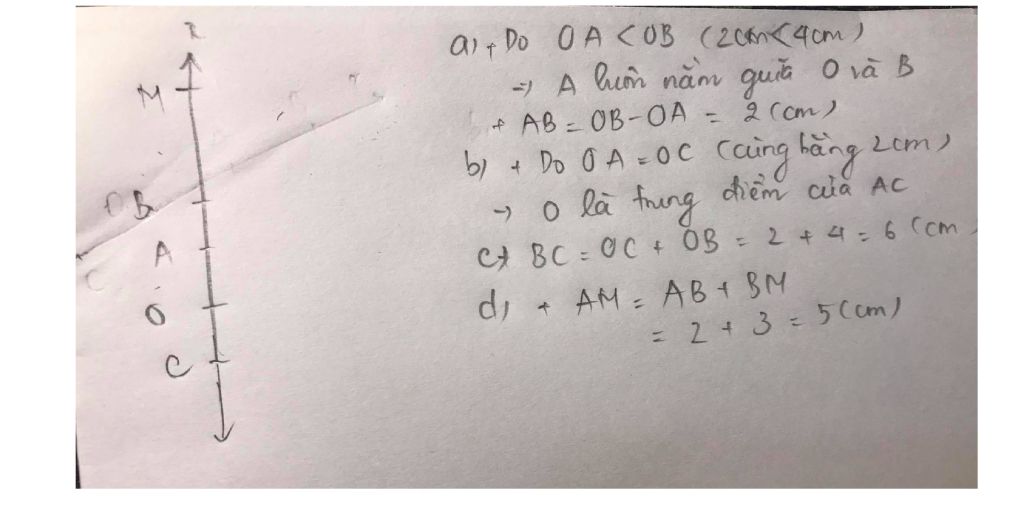 x
M
B
A
O
C
a) + Do OA < OB (2cm < 4cm)
=) A luôn nằm giữa O và B
+ AB = OB - OA = 2 (cm)
b) + Do OA = OC (cùng bằng 2cm)
→ O là trung điểm của AC
c) BC = OC + OB = 2 + 4 = 6 (cm
d) + AM = AB + BM
= 2 + 3 = 5 (cm)